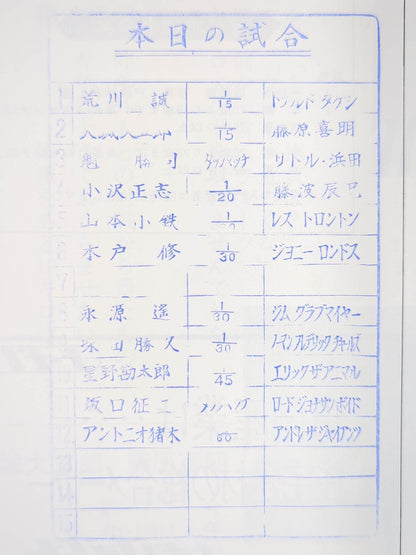 本日の試合
1 荒川 誠 1/15 ドナルド タケシ
2 1/15 藤原喜明
3 勝司 タッグマッチ リトル・浜田
小沢正志 1/20 藤波辰巳
山本小鉄 レス トロントン
木戸 修 1/30 ジョニー ロンドス
永源 遥 1/30 ジム グラブマイヤー
塚田勝久 1/30 ノーマン フレデリック チャールズ
星野勘太郎 1/45 エリック ザ アニマル
坂口征二 ロード ジョナサン ボイド
アントニオ猪木 60 アンドレ ザ ジャイアンツ
13
14
15